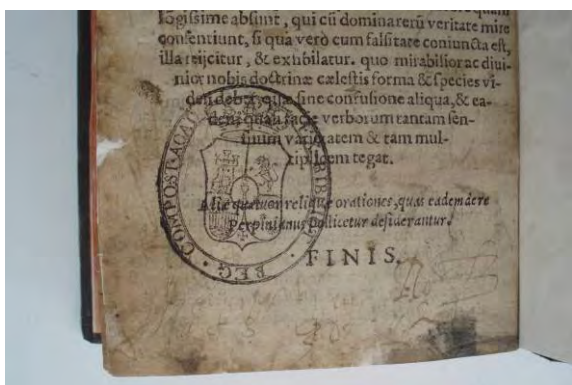 logissime absunt, qui cũ dominaterũ veritate mire
consentiunt, si qua verò cum falsitate coniuncta est,
illa reijcitur, & exhibilatur. quo mirabilior ac diui-
nior nobis doctrinæ cælestis forma & species vi-
deri debet, quæ sine confusione aliqua, & ea-
dem quasi facie verborum tantam sen-
suum varietatem & tam mul-
tiplicem tegat.
Aliæ quatuor reliquæ orationes, quas eadem de re
Perpinianus pollicetur desiderantur.
FINIS.
REG. COMPOST. ACAD. BIBLIO